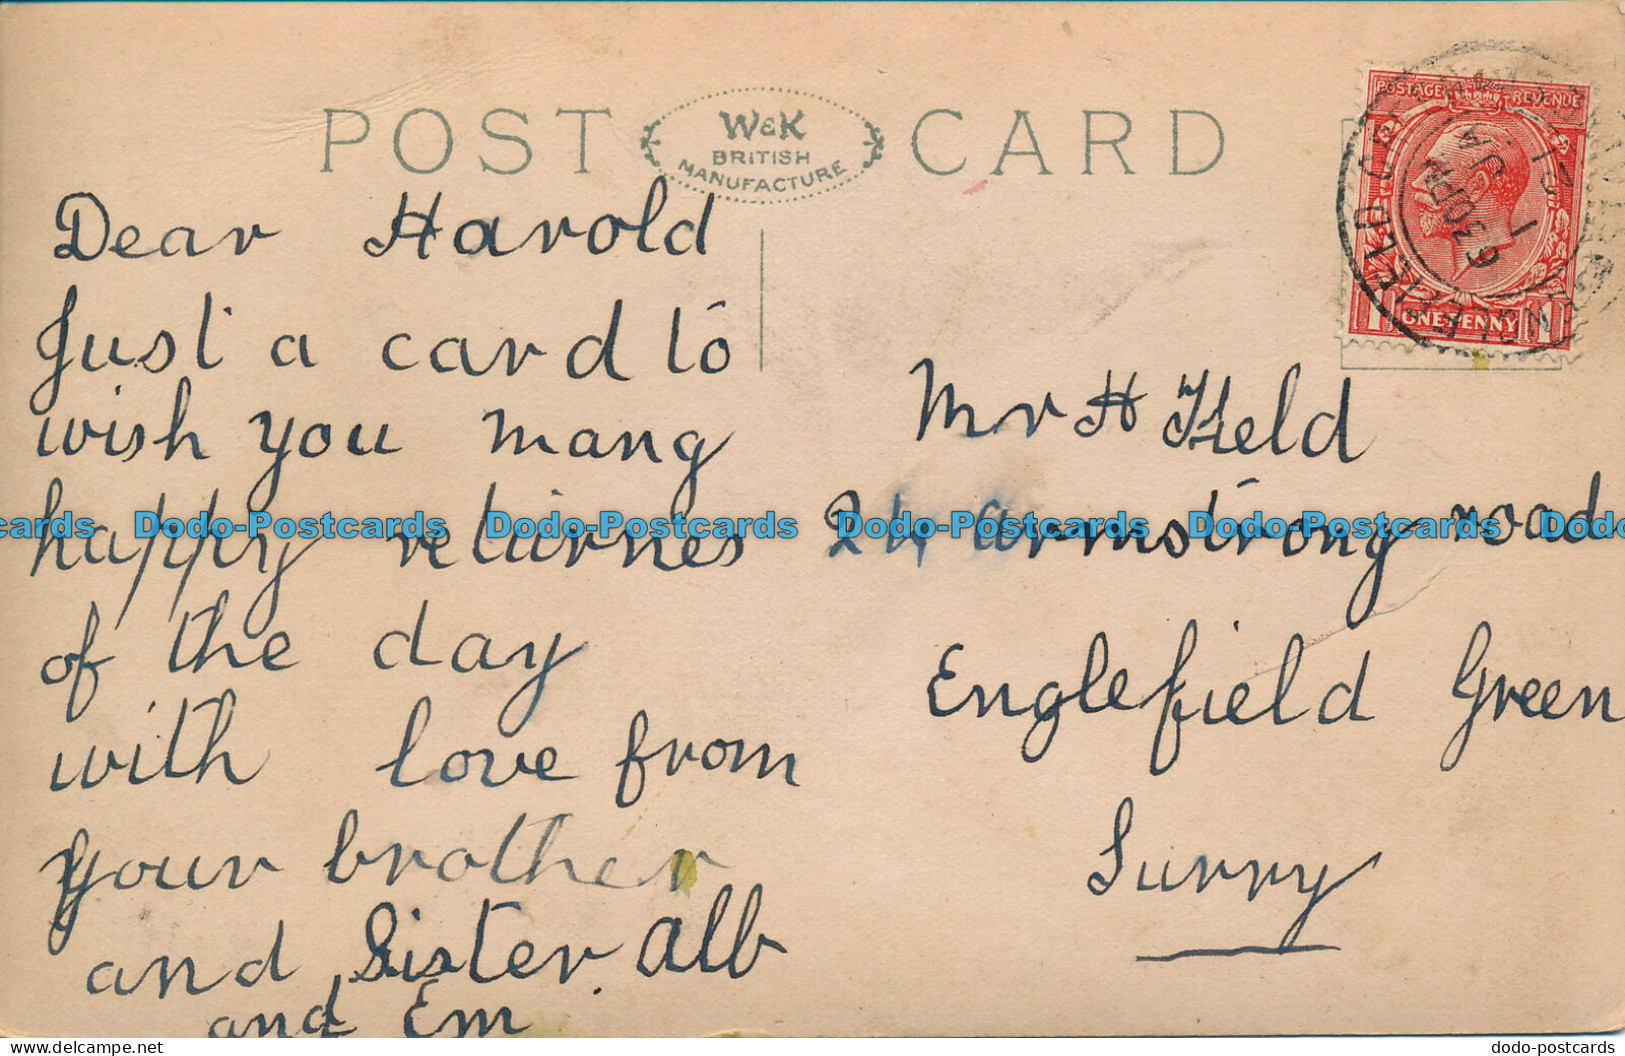 POST CARD
W&K
BRITISH
MANUFACTURE
POSTAGE REVENUE
ONE PENNY
ENGLEFIELD GREEN
6 30 PM
1 JA
21
Dear Harold
Just a card to
wish you mang
happy returnes
of the day
with love from
your brother
and Sister Alb
and Em
Mr H Field
24 Armstrong road
Englefield Green
Surry
Dodo-Postcards Dodo-Postcards Dodo-Postcards Dodo-Postcards
www.delcampe.net
dodo-postcards